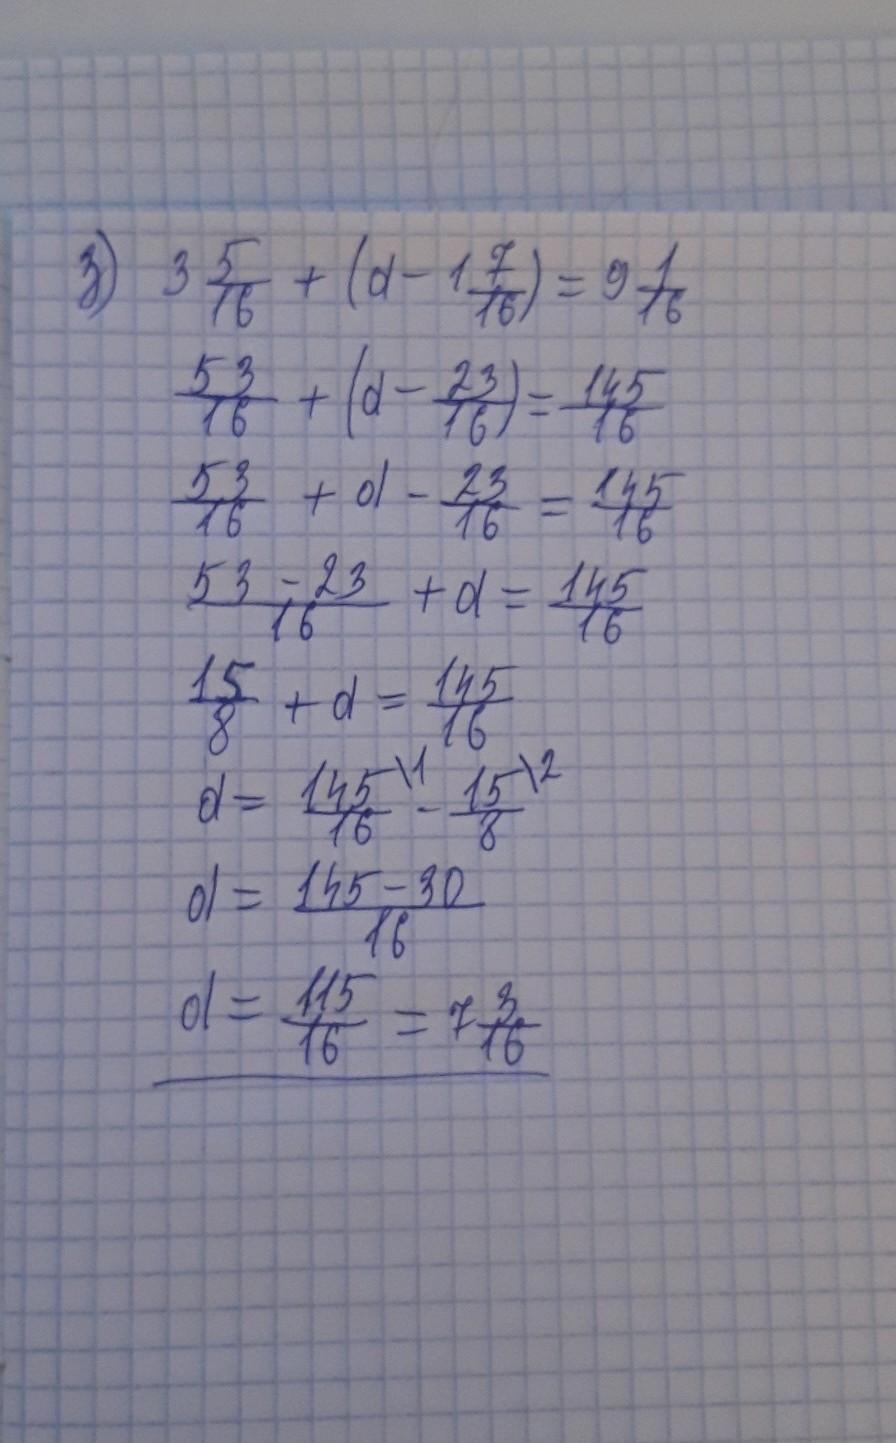 з) 3 5/16 + (d - 1 7/16) = 9 1/16
53/16 + (d - 23/16) = 145/16
53/16 + d - 23/16 = 145/16
53 - 23/16 + d = 145/16
15/8 + d = 145/16
d = 145/16 \1 - 15/8 \2
d = 145 - 30/16
d = 115/16 = 7 3/16